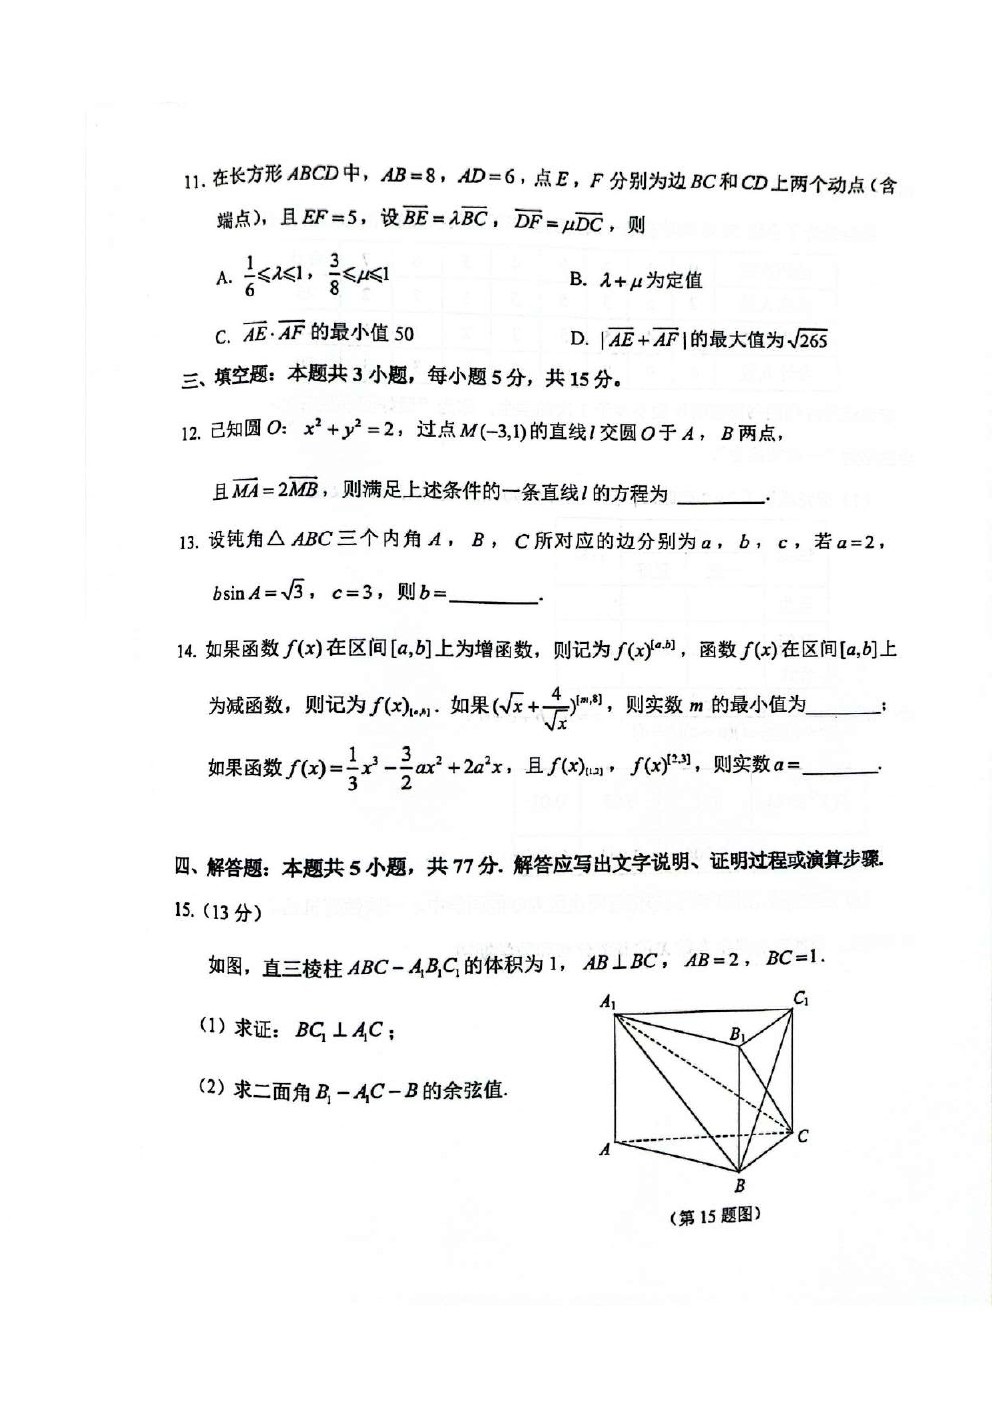 11. 在长方形 ABCD 中，AB=8，AD=6，点 E，F 分别为边 BC 和 CD 上两个动点（含
端点），且 EF=5，设 $\overrightarrow{BE}=\lambda\overrightarrow{BC}$，$\overrightarrow{DF}=\mu\overrightarrow{DC}$，则
A. $\frac{1}{6}$≤λ≤1，$\frac{3}{8}$≤μ≤1 B. λ+μ 为定值
C. $\overrightarrow{AE}\cdot\overrightarrow{AF}$ 的最小值 50 D. $|\overrightarrow{AE}+\overrightarrow{AF}|$ 的最大值为 $\sqrt{265}$
三、填空题：本题共 3 小题，每小题 5 分，共 15 分。
12. 已知圆 O：$x^2+y^2=2$，过点 M(−3,1) 的直线 l 交圆 O 于 A，B 两点，
且 $\overrightarrow{MA}=2\overrightarrow{MB}$，则满足上述条件的一条直线 l 的方程为________.
13. 设钝角△ABC 三个内角 A，B，C 所对应的边分别为 a，b，c，若 a=2，
b sin A=$\sqrt{3}$，c=3，则 b=________.
14. 如果函数 f(x) 在区间 [a,b] 上为增函数，则记为 $f(x)^{[a,b]}$，函数 f(x) 在区间 [a,b] 上
为减函数，则记为 $f(x)_{[a,b]}$．如果 $(\sqrt{x}+\frac{4}{\sqrt{x}})^{[m,8]}$，则实数 m 的最小值为________；
如果函数 $f(x)=\frac{1}{3}x^3-\frac{3}{2}ax^2+2a^2x$，且 $f(x)_{[1,2]}$，$f(x)^{[2,3]}$，则实数 a=________.
四、解答题：本题共 5 小题，共 77 分．解答应写出文字说明、证明过程或演算步骤.
15.（13 分）
如图，直三棱柱 $ABC-A_1B_1C_1$ 的体积为 1，AB⊥BC，AB=2，BC=1.
（1）求证：$BC_1⊥A_1C$；
（2）求二面角 $B_1-A_1C-B$ 的余弦值.
A₁
C₁
B₁
A
C
B
（第 15 题图）